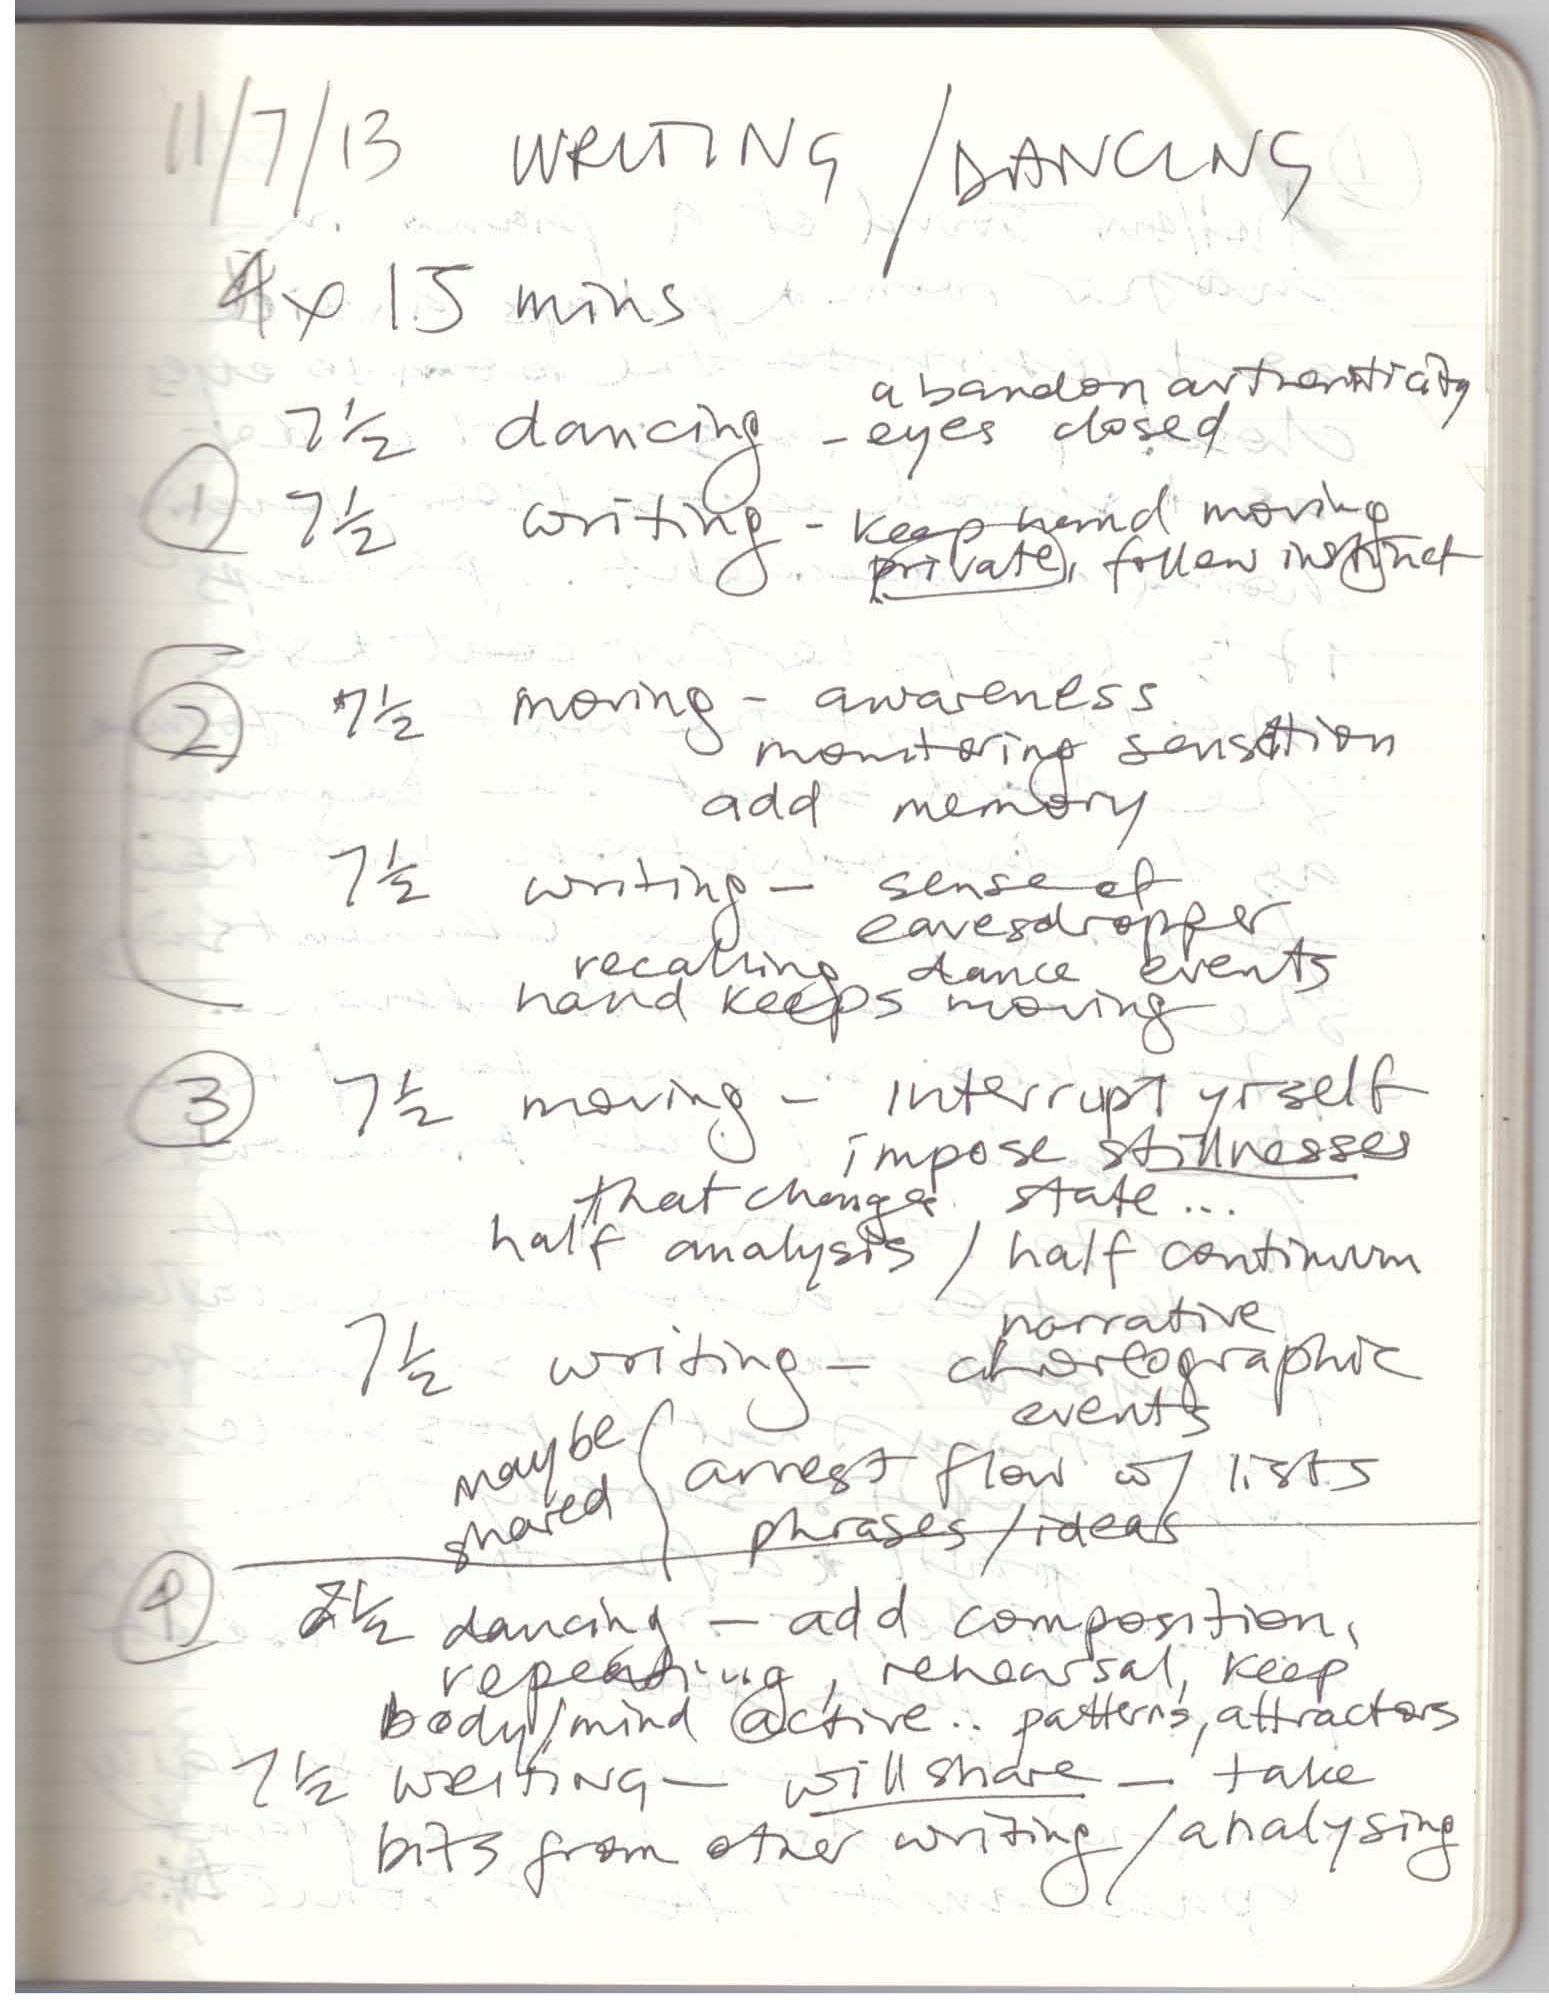 11/7/13 WRITING / DANCING
4 x 15 mins
abandon authenticity
7½ dancing - eyes closed
① 7½ writing - keep hand moving
private, follow instinct
② 7½ moving - awareness
monitoring sensation
add memory
7½ writing - sense of
eavesdropper
recalling dance events
hand keeps moving
③ 7½ moving - interrupt yrself
impose stillnesses
that change state...
half analysis / half continuum
narrative
7½ writing - choreographic
events
maybe shared
arrest flow w/ lists
phrases / ideas
④ 7½ dancing - add composition,
repeating, rehearsal, keep
body/mind active.. patterns, attractors
7½ WRITING - will share - take
bits from other writing / analysing